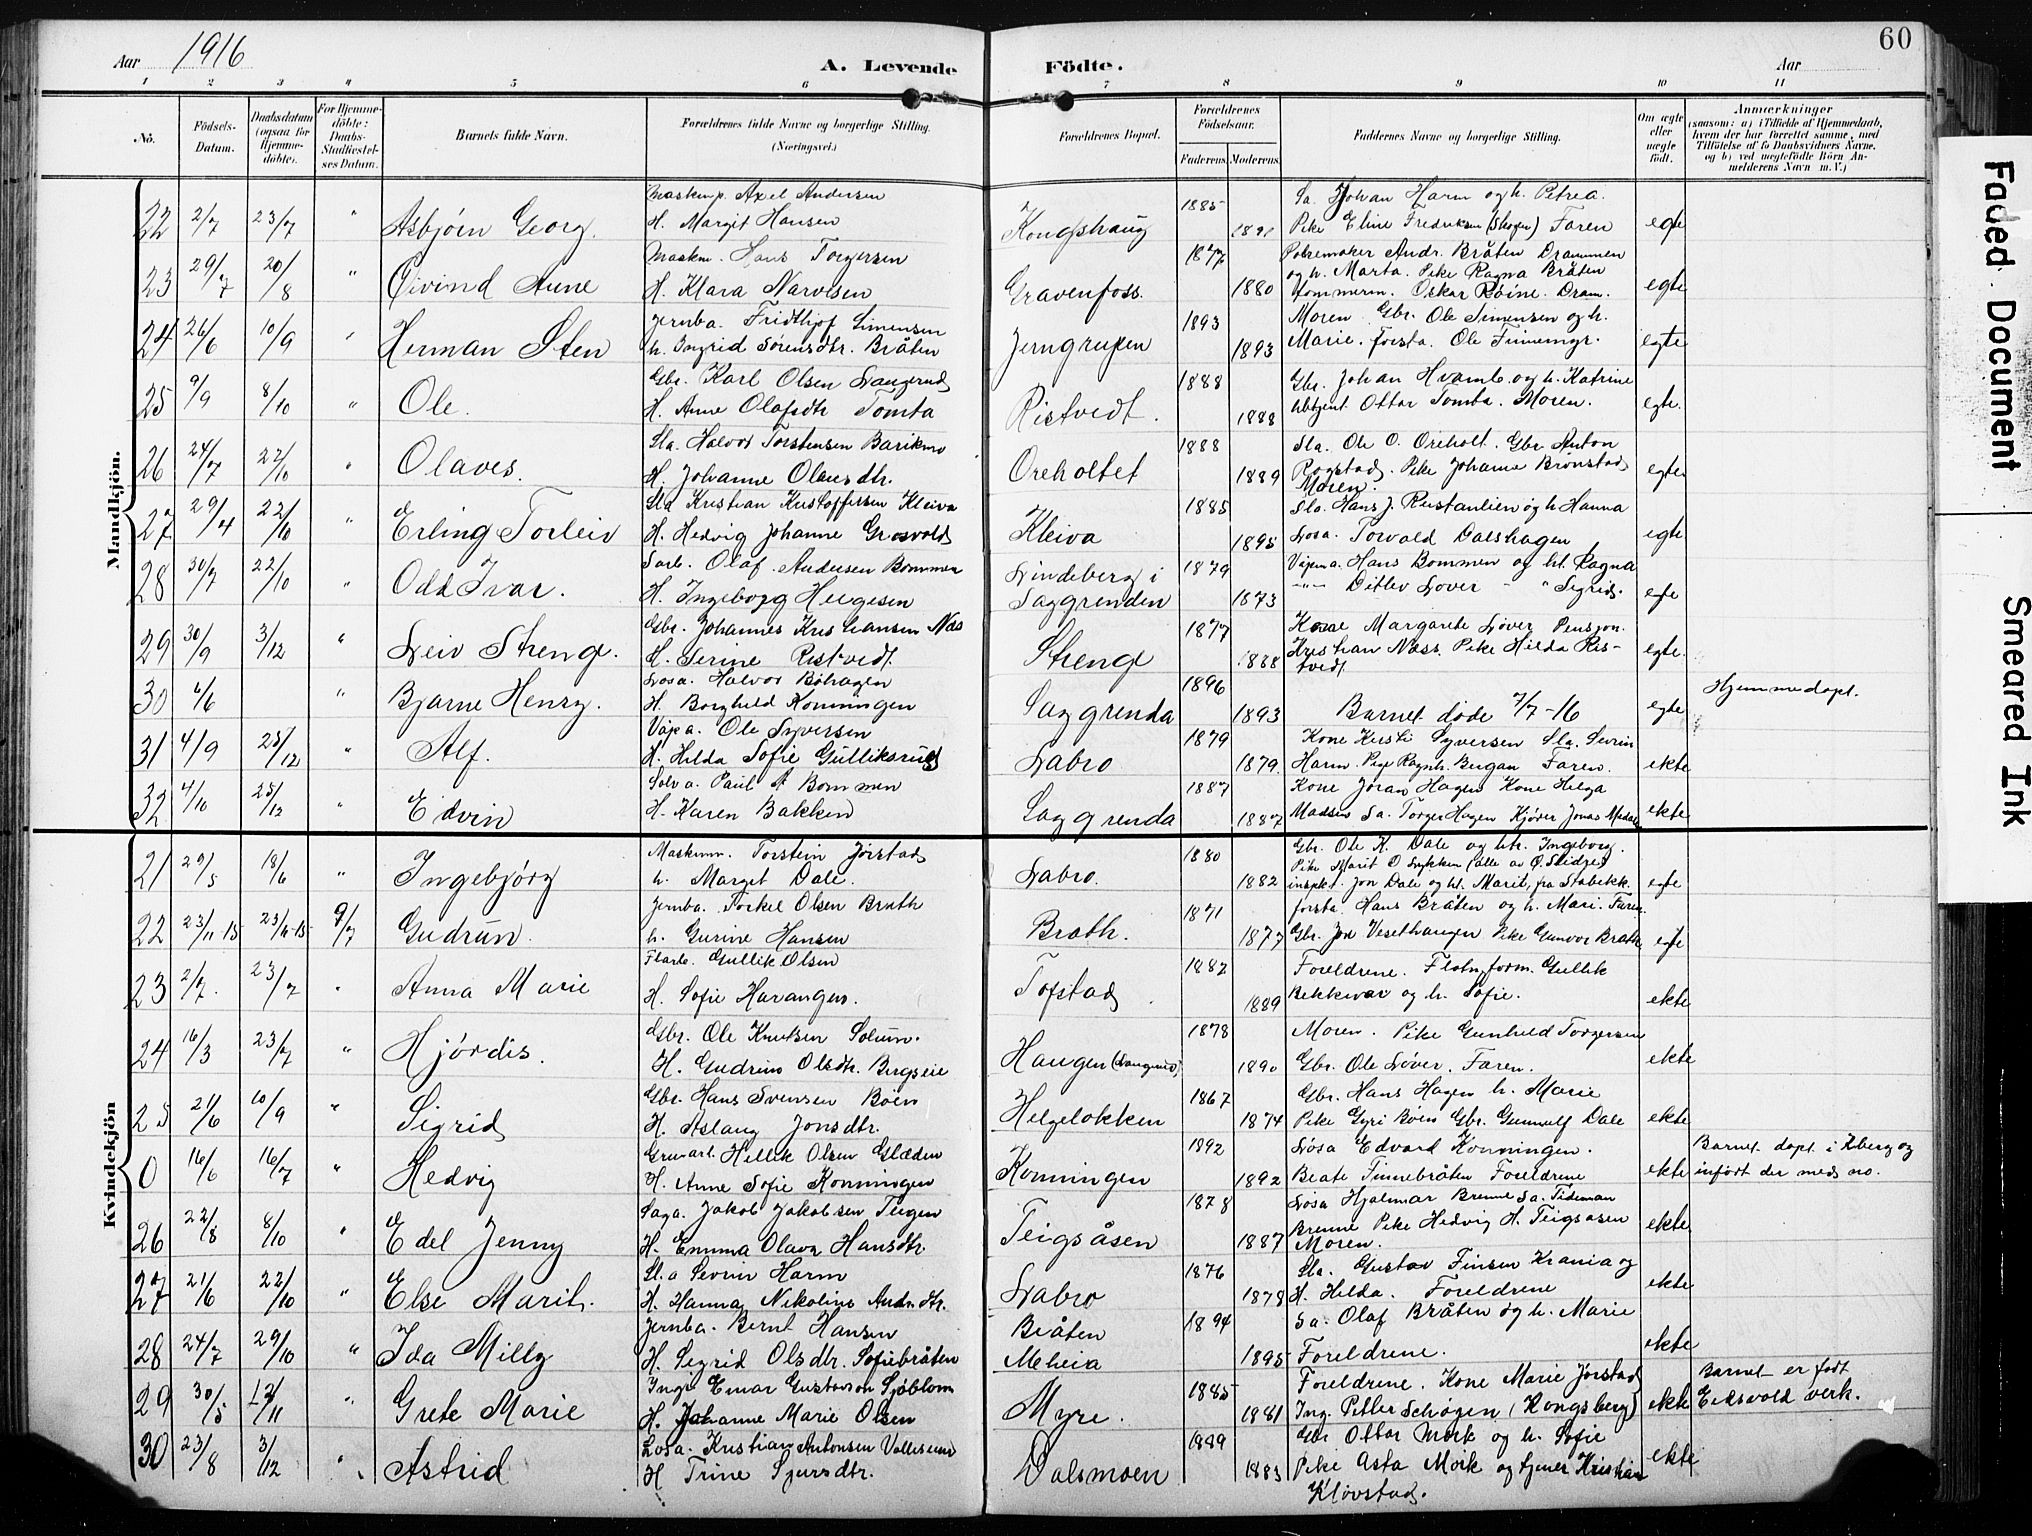 60
Aar 1916
A. Levende Födte.
Aar
1 2 3 4 5 6 7 8 9 10 11
No.
Födsels-Datum.
Daabsdatum (ogsaa for Hjemme-döbte).
For Hjemme-döbte: Daabs-Stadfæstel-ses Datum.
Barnets fulde Navn.
Forældrenes fulde Navne og borgerlige Stilling. (Næringsvei.)
Forældrenes Bopæl.
Forældrenes Födselsaar.
Faderens Moderens
Faddernes Navne og borgerlige Stilling.
Om ægte eller uægte födt.
Anmærkninger
(saasom: a) i Tilfælde af Hjemmedaab, hvem der har forrettet samme, med Tilföielse af to Daabsvidners Navne, og b) ved uegtefödte Börn An-melderens Navn m. V.)
Mandkjön.
22 2/7 23/7 " Asbjørn Georg. Maskin p. Axel Andersen Kongshaug 1885 Sa. Johan Harm og h. Petrea.
H. Margit Hansen 1891 Pike Eline Fredriksen (Skogen) Faren egte
23 29/7 20/8 " Øivind Aune Maskm. Hans Torgersen Gravenfoss. 1877 Andr. Bråten Drammen
H. Klara Narvesen 1880 og h. Marta. Pike Ragna Bråten egte
Oskar Røine. Dram.
24 26/6 10/9 " Herman Sten Jernba. Fridthjof Simensen Jerngruben 1893 Moren Gbr. Ole Simensen og h.
h. Ingrid Sørensdtr. Bråten 1893 Marie. forsta. Ole Finnemgr. egte
25 9/9 8/10 " Ole. Gbr. Karl Olsen Langerud Ristvedt. 1888 Gbr. Johan Hvamb. og h. Katrine
H. Anne Olafsdtr Tomta 1888 Ottar Tomba. Moren. egte.
26 24/7 22/10 " Olaves. Sla. Halvor Torstensen Barikmo Oreholtet 1888 Sla. Ole O. Oreholt. Gbr Anton
H. Johanne Olausdtr. 1889 Rogstad. Pike Johanne Brønstad egte
Moren.
27 29/4 22/10 " Erling Torleiv Sla Kristian Kristoffersen Kleiva Kleiva 1885 Sla. Hans J. Rustanlien og h Hanna
H. Hedvig Johanne Grosvold 1895 Løsa. Torvald Dalshagen egte
28 30/7 22/10 " Odd Ivar. Sarb. Olaf Andersen Bommen Lindeberg i 1879 Vajena. Hans Bommen og ht. Ragna
H. Ingeborg Helgesen Saggrenden 1873 " Ditlev Løver - " Sigrid. egte
29 30/9 3/12 " Leiv Strenge. Gbr. Johannes Kristiansen Næs Strenge 1877 Kone Margarete Løver Pensjon.
H. Serine Ristvedt 1888 Kristian Næss. Pike Hilda Ris- egte.
tvedt
30 6/6 " Bjarne Henry. Løsa. Halvor Bøhagen Saggrenda 1896 Hjemmedøpt.
H. Borghild Konningen 1893 Barnet døde 7/7-16 egte
31 4/9 25/12 " Alf. Vajea. Ole Syversen Labro 1879 Kone Kirsti Syversen Sla. Sevrin
H. Hilda Sofie Gulliksrud 1879. Harm. Pige Ragnh. Bergan Faren. ekte
32 4/10 25/12 " Edvin Solva. Paul A Bommen Saggrenda 1887 Kone Joran Hagen Kone Helga
H. Karen Bakken 1887 Madsen Sa. Torger Hagen Kjører Jonas Medalen ekte
Kvindekjön
21 29/5 18/6 " Ingebjørg Maskinm. Torstein Jørstad Labro. 1880 Gbr. Ole K. Dale og htr. Ingeborg.
h. Marget Dale. 1882 Pike Marit O Lykken (alle av Ø. Slidre)
inspkt. Jon Dale og ht. Marit, fra Stabekk. egte
22 23/11-15 23/11-15 9/7 Gudrun. Jernba. Torkel Olsen Brath Brath. 1871 forsta. Hans Bråten og h. Mari. Faren.
h. Gurine Hansen 1877 Gbr. Jon Vesethaugen Pike Gunvor Brath egte
23 2/7. 23/7 " Anna Marie Fløarb. Gullik Olsen Tofstad 1882 Foreldrene. Fløtn.form. Gullik
H. Sofie Harangen. 1889 Bekkevar og h. Sofie. ekte
24 16/3 23/7 " Hjördis. Gbr. Ole Knutsen Solum. Haugen (Langerud) 1878 Moren. Pike Gunhild Torgersen
H. Gudrun Olsdtr. Bergseie 1890 Gbr. Ole Løver. Faren. ekte
25 21/6 10/9 " Sigrid Gbr. Hans Svensen Bøen Helgelokken 1867 Gbr. Hans Hagen h. Marie
H. Aslaug Jonsdtr. 1874 Pike Gyri Bøen Gbr. Gunnulf Dale ekte
0 16/6 16/7 " Hedvig Gruvarb. Hellik Olsen Glæden Konningen 1892 Løsa Edvard Konningen. Barnet døpt i Kberg og
H. Anne Sofie Konningen 1892 Beate Finnebråten Foreldrene ekte infört der med no.
26 22/8 8/10 " Edel Jenny Saga. Jakob Jakobsen Teigen Teigsåsen 1878 Løsa Hjalmar Brenne Sa. Tideman
H. Emma Olava Hansdtr. 1887 Brenne Pike Hedvig H. Teigsåsen ekte
Moren.
27 21/6 22/10 " Else Marit. Sl.a Sevrin Harm Labro 1876 Sla. Gustav Finsen Krania og
H. Hanna Nikoline Andr.dtr. 1878 H. Hilda. Foreldrene ekte
28 24/7 29/10 " Ida Milly Jernba. Bernt Hansen Bråten 1894 Sa. Olaf Bråten og h. Marie
H. Sigrid Olsdtr. Sofiebråten Meheia 1895 Foreldrene. ekte
29 30/5 12/11 " Grete Marie Ingr Einar Gustavson Sjöblom Myre. 1885 Foreldrene. Kone Marie Jørstad Barnet er født
H. Johanne Marie Olsen 1881 Ing. Petter Schøgen (Kongsberg) ekte Eidsvold verk.
30 23/8 3/12 " Astrid Løsa. Kristian Antonsen Vollesund Dalsmoen 1889 Gbr Ottar Mørk og h. Sofie
H Trine Sjursdtr. 1883 Pike Asta Mørk og tjener Kristian ekte
Kløvstad.
Faded Document
Smeared Ink